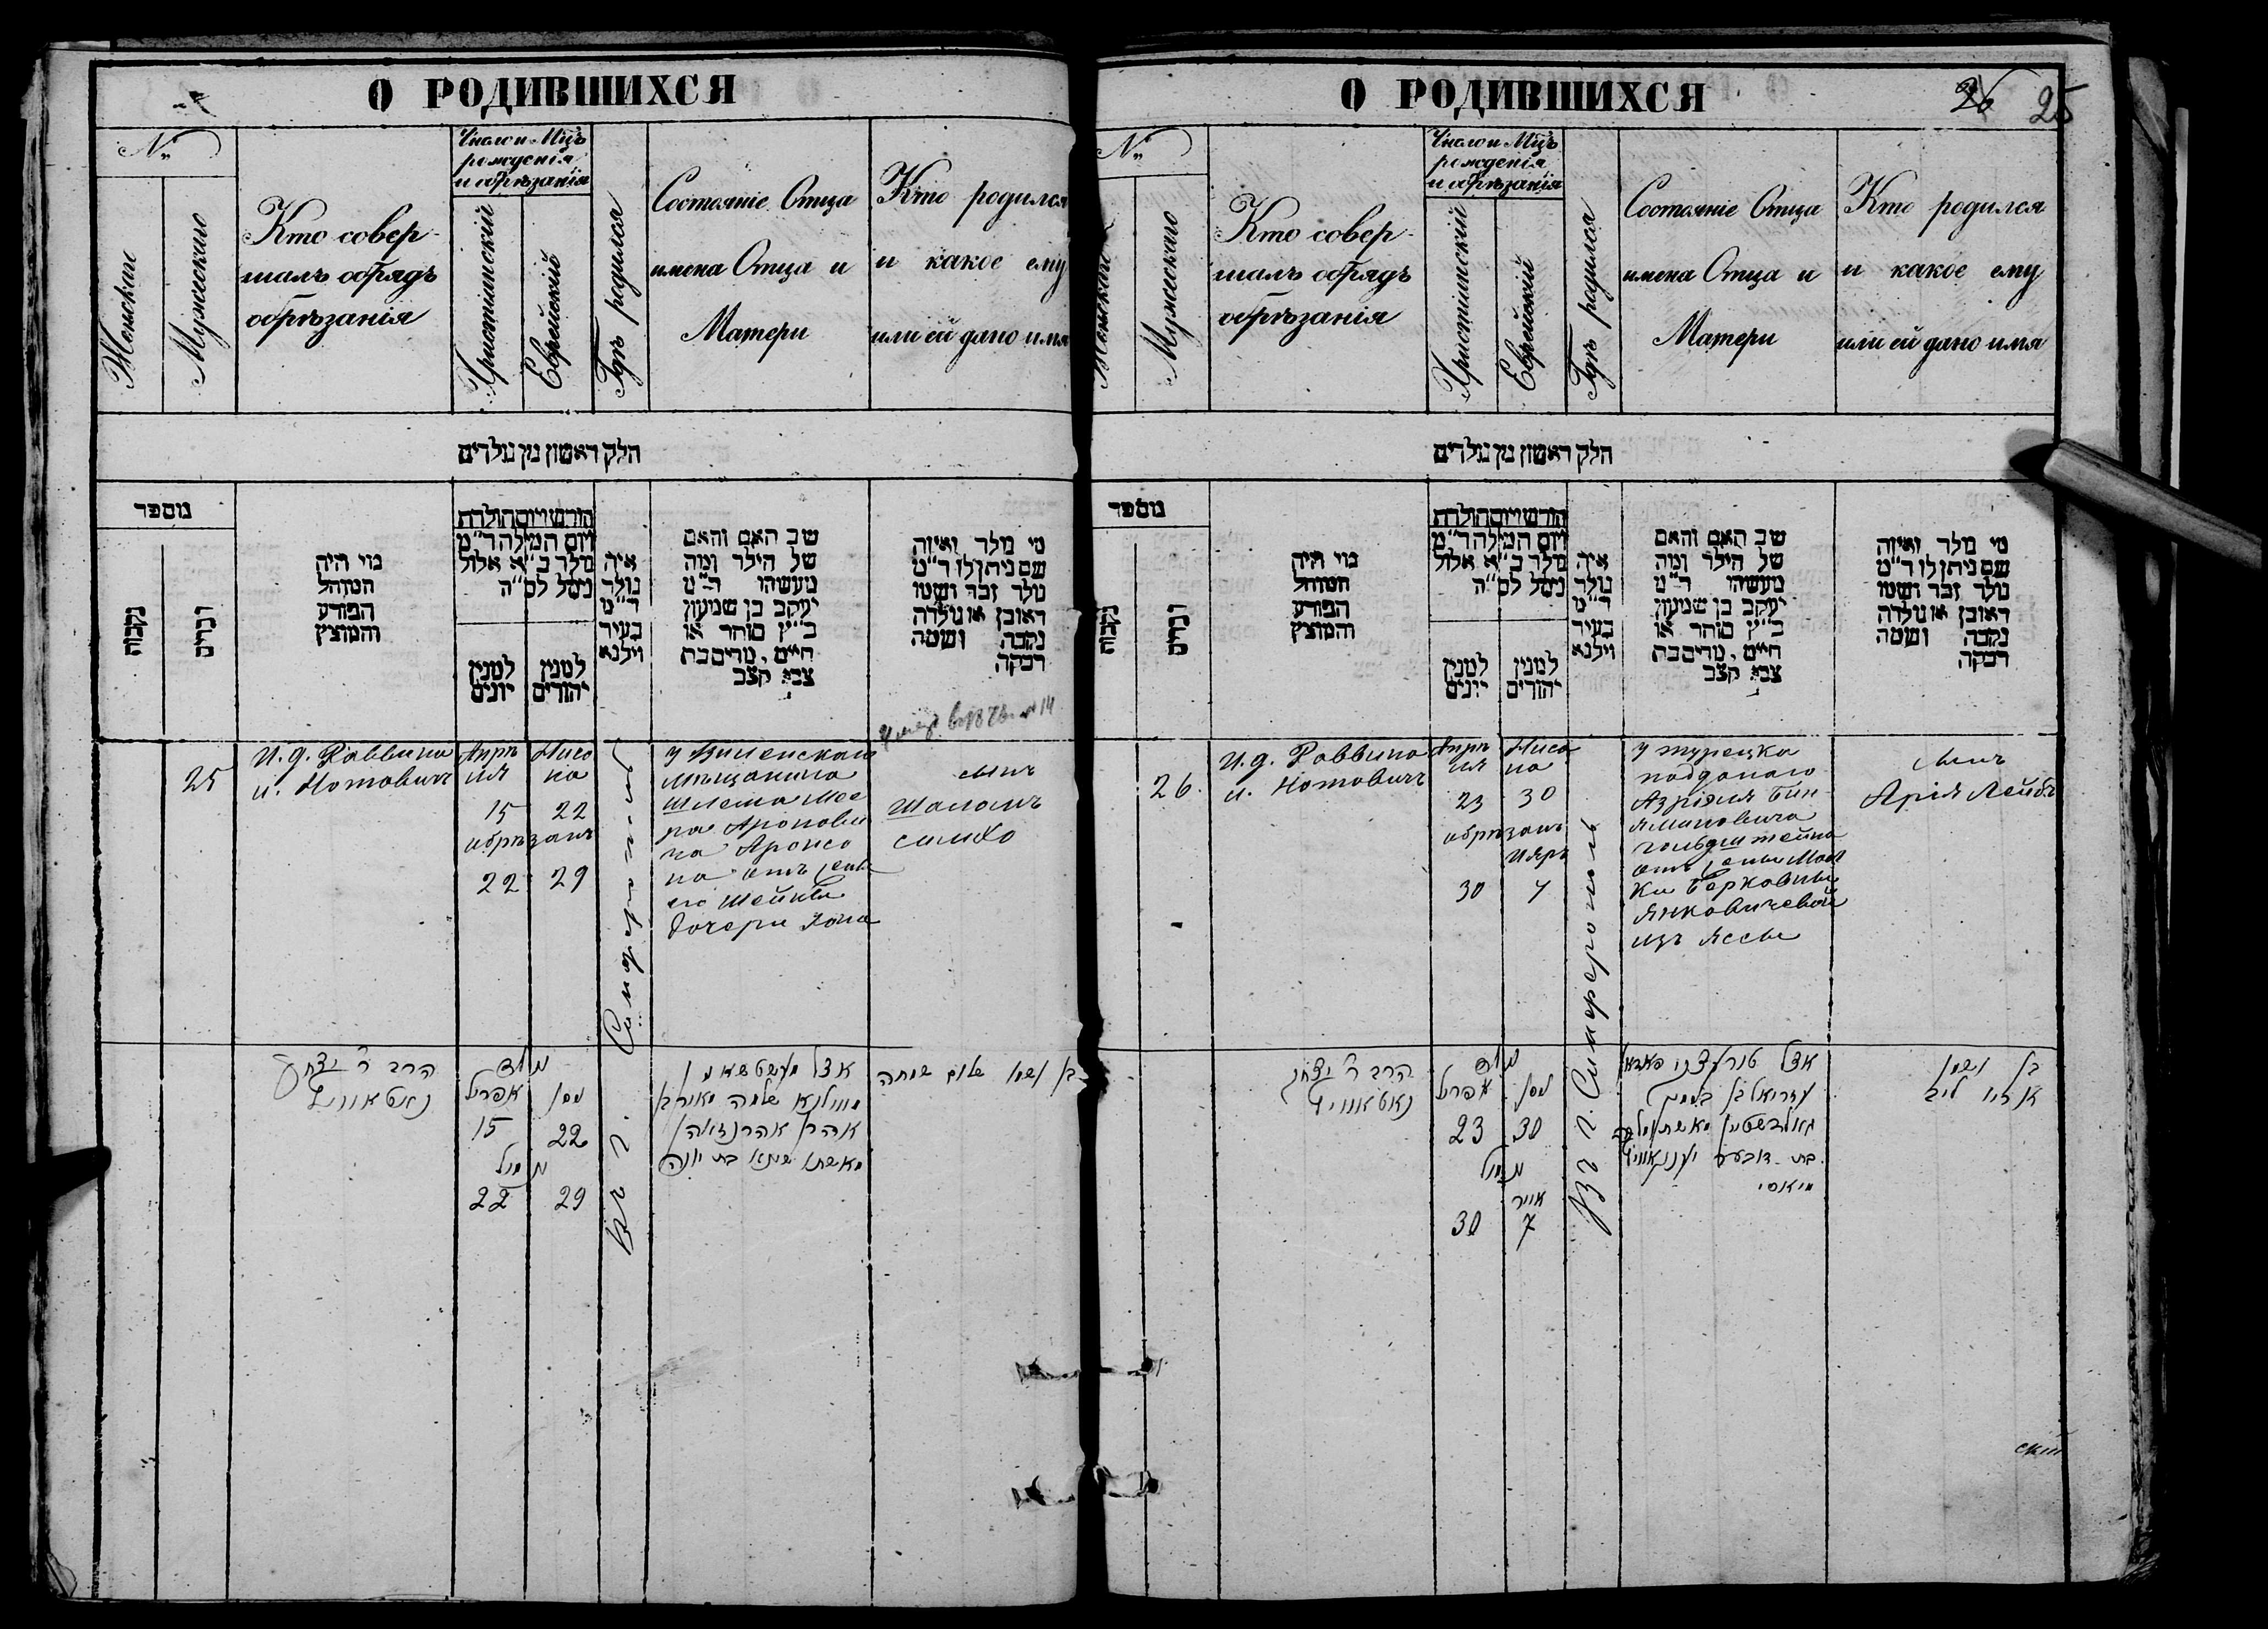 О РОДИВШИХСЯ
№
Женскаго
Мужескаго
Кто совер-
шалъ обрядъ
обрѣзанія
Число и Мцъ
рожденія
и обрѣзанія
Христіянскій
Еврейскій
Гдѣ родился
Состояніе Отца
имена Отца и
Матери
Кто родился
и какое ему
или ей дано имя
חלק ראשון מן נולדים
מספר
נקבות
זכרים
מי היה
המוהל
הפורע
והמוצץ
חודש ויום הולדת
ויום המילה ד"מ
נולד ב"א אלול
נימל לס"ה
למנין
יונים
למנין
יהודים
איה
נולד
ד"מ
בעיר
וילנא
שב האם והאם
של הילד ומה
מעשהו ד"מ
יעקב בן שמעון
כ"ץ סוחר או
חיים, מרים בת
צבי קצב
מי נולד ואיזה
שם ניתן לו ד"מ
נולד זכר ושמו
ראובן או נולדה
נקבה ושמה
רבקה
25
И. д. Раввина
и. Нотовичъ
Апрѣ
ля
15
Ниса
на
22
обрѣзанъ
22 29
Въ г. Симферополь
у Виленскаго
мѣщанина
Шлема Мее
ра Аронови
ча Аронсо
на отъ жены
его Шейны
дочери Иона
сынъ
Шаломъ
симхо
הרב ר' יצחק
נאטאוויץ
נולד
אפריל
15
ניסן
22
נימול
22 29
אצל מעשטשאנין
מווילנא שלמה מאיר בן
אהרן אהרנזאהן
מאשתו שיינא בת יונה
בן ושמו שלום שמחה
О РОДИВШИХСЯ
26 25
№
Женскаго
Мужескаго
Кто совер-
шалъ обрядъ
обрѣзанія
Число и Мцъ
рожденія
и обрѣзанія
Христіянскій
Еврейскій
Гдѣ родился
Состояніе Отца
имена Отца и
Матери
Кто родился
и какое ему
или ей дано имя
חלק ראשון מן נולדים
מספר
נקבות
זכרים
מי היה
המוהל
הפורע
והמוצץ
חודש ויום הולדת
ויום המילה ד"מ
נולד ב"א אלול
נימל לס"ה
למנין
יונים
למנין
יהודים
איה
נולד
ד"מ
בעיר
וילנא
שב האם והאם
של הילד ומה
מעשהו ד"מ
יעקב בן שמעון
כ"ץ סוחר או
חיים, מרים בת
צבי קצב
מי נולד ואיזה
שם ניתן לו ד"מ
נולד זכר ושמו
ראובן או נולדה
נקבה ושמה
רבקה
26.
И. д. Раввина
и. Нотовичъ
Апрѣ
ля
23
Ниса
на
30
обрѣзанъ
Ияръ
30 7
Въ г. Симферополь
у турецка
подданаго
Азріеля Бин-
яминовича
гольдштейна
отъ жены Мал
ки Берковны
Янковичевой
изъ Яссы
сынъ
Арія Лейбъ
הרב ר' יצחק
נאטאוויץ
נולד
אפריל
23
ניסן
30
נימול
אייר
30 7
אצל טורעצקי
עזריאל בן בנימין
גאלדשטיין מאשתו מלכה
בת בערקא יענקאוויץ
מיאסי
בן ושמו
אריה ליב